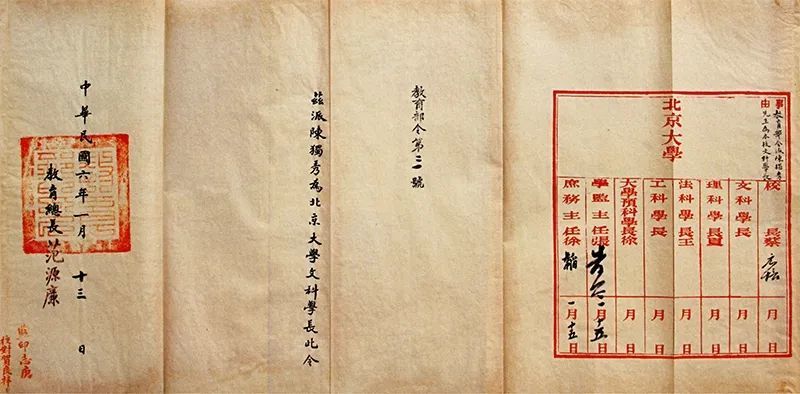 事由
教育部令派陳獨秀
先生為本校文科學長
北京大學
校長蔡
文科學長 月 日
理科學長夏 月 日
法科學長王 月 日
工科學長 月 日
大學預科學長徐 月 日
學監主任張 一月十五日
庶務主任徐 一月十五日
教育部令第三號
茲派陳獨秀為北京大學文科學長此令
中華民國六年一月十三日
教育總長范源廉
監印志廣
校對賀良樸